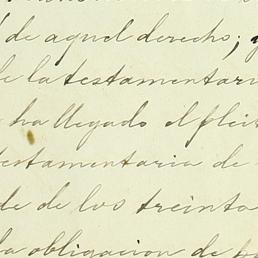 de aquel derecho; y
de la testamentari
ha llegado el pleit
testamentaria de
de de los treinta
la obligacion de